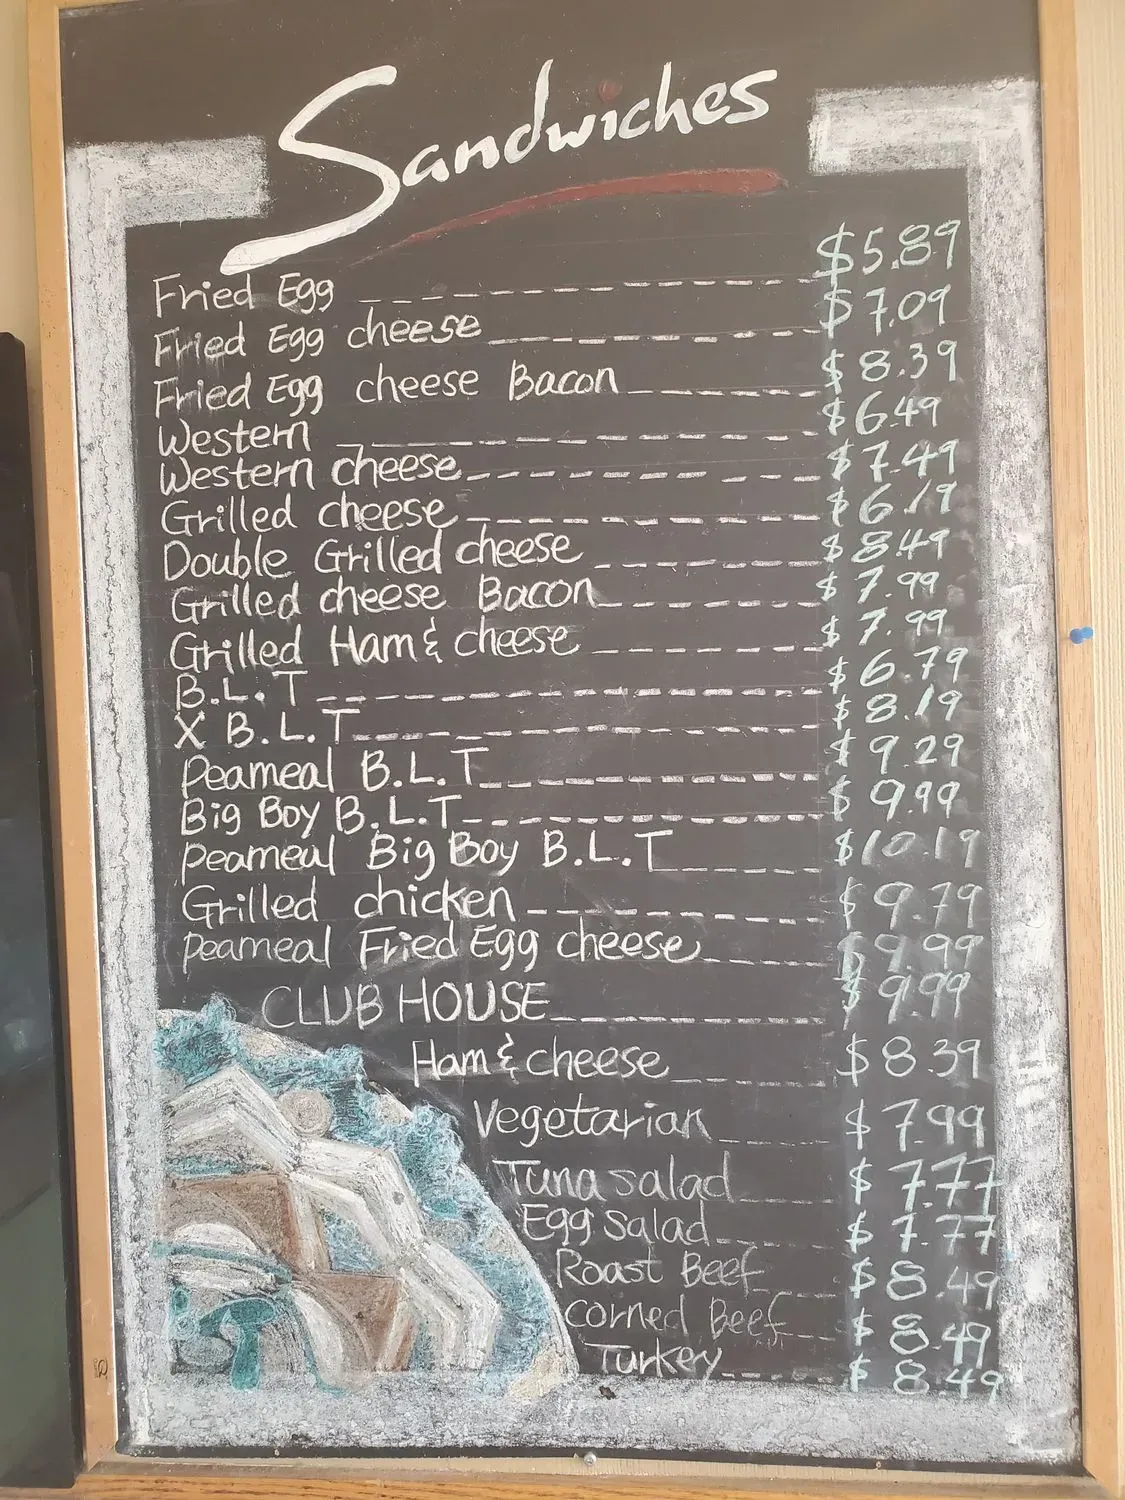 Sandwiches
Fried Egg $5.89
Fried Egg cheese $7.09
Fried Egg cheese Bacon $8.39
Western $6.49
Western cheese $7.49
Grilled cheese $6.19
Double Grilled cheese $8.49
Grilled cheese Bacon $7.99
Grilled Ham & cheese $7.99
B.L.T $6.79
X B.L.T $8.19
Peameal B.L.T $9.29
Big Boy B.L.T $9.99
Peameal Big Boy B.L.T $10.19
Grilled chicken $9.79
Peameal Fried Egg cheese $9.99
CLUB HOUSE $9.99
Ham & cheese $8.39
Vegetarian $7.99
Tuna salad $7.77
Egg Salad $7.77
Roast Beef $8.49
corned Beef $8.49
Turkey $8.49